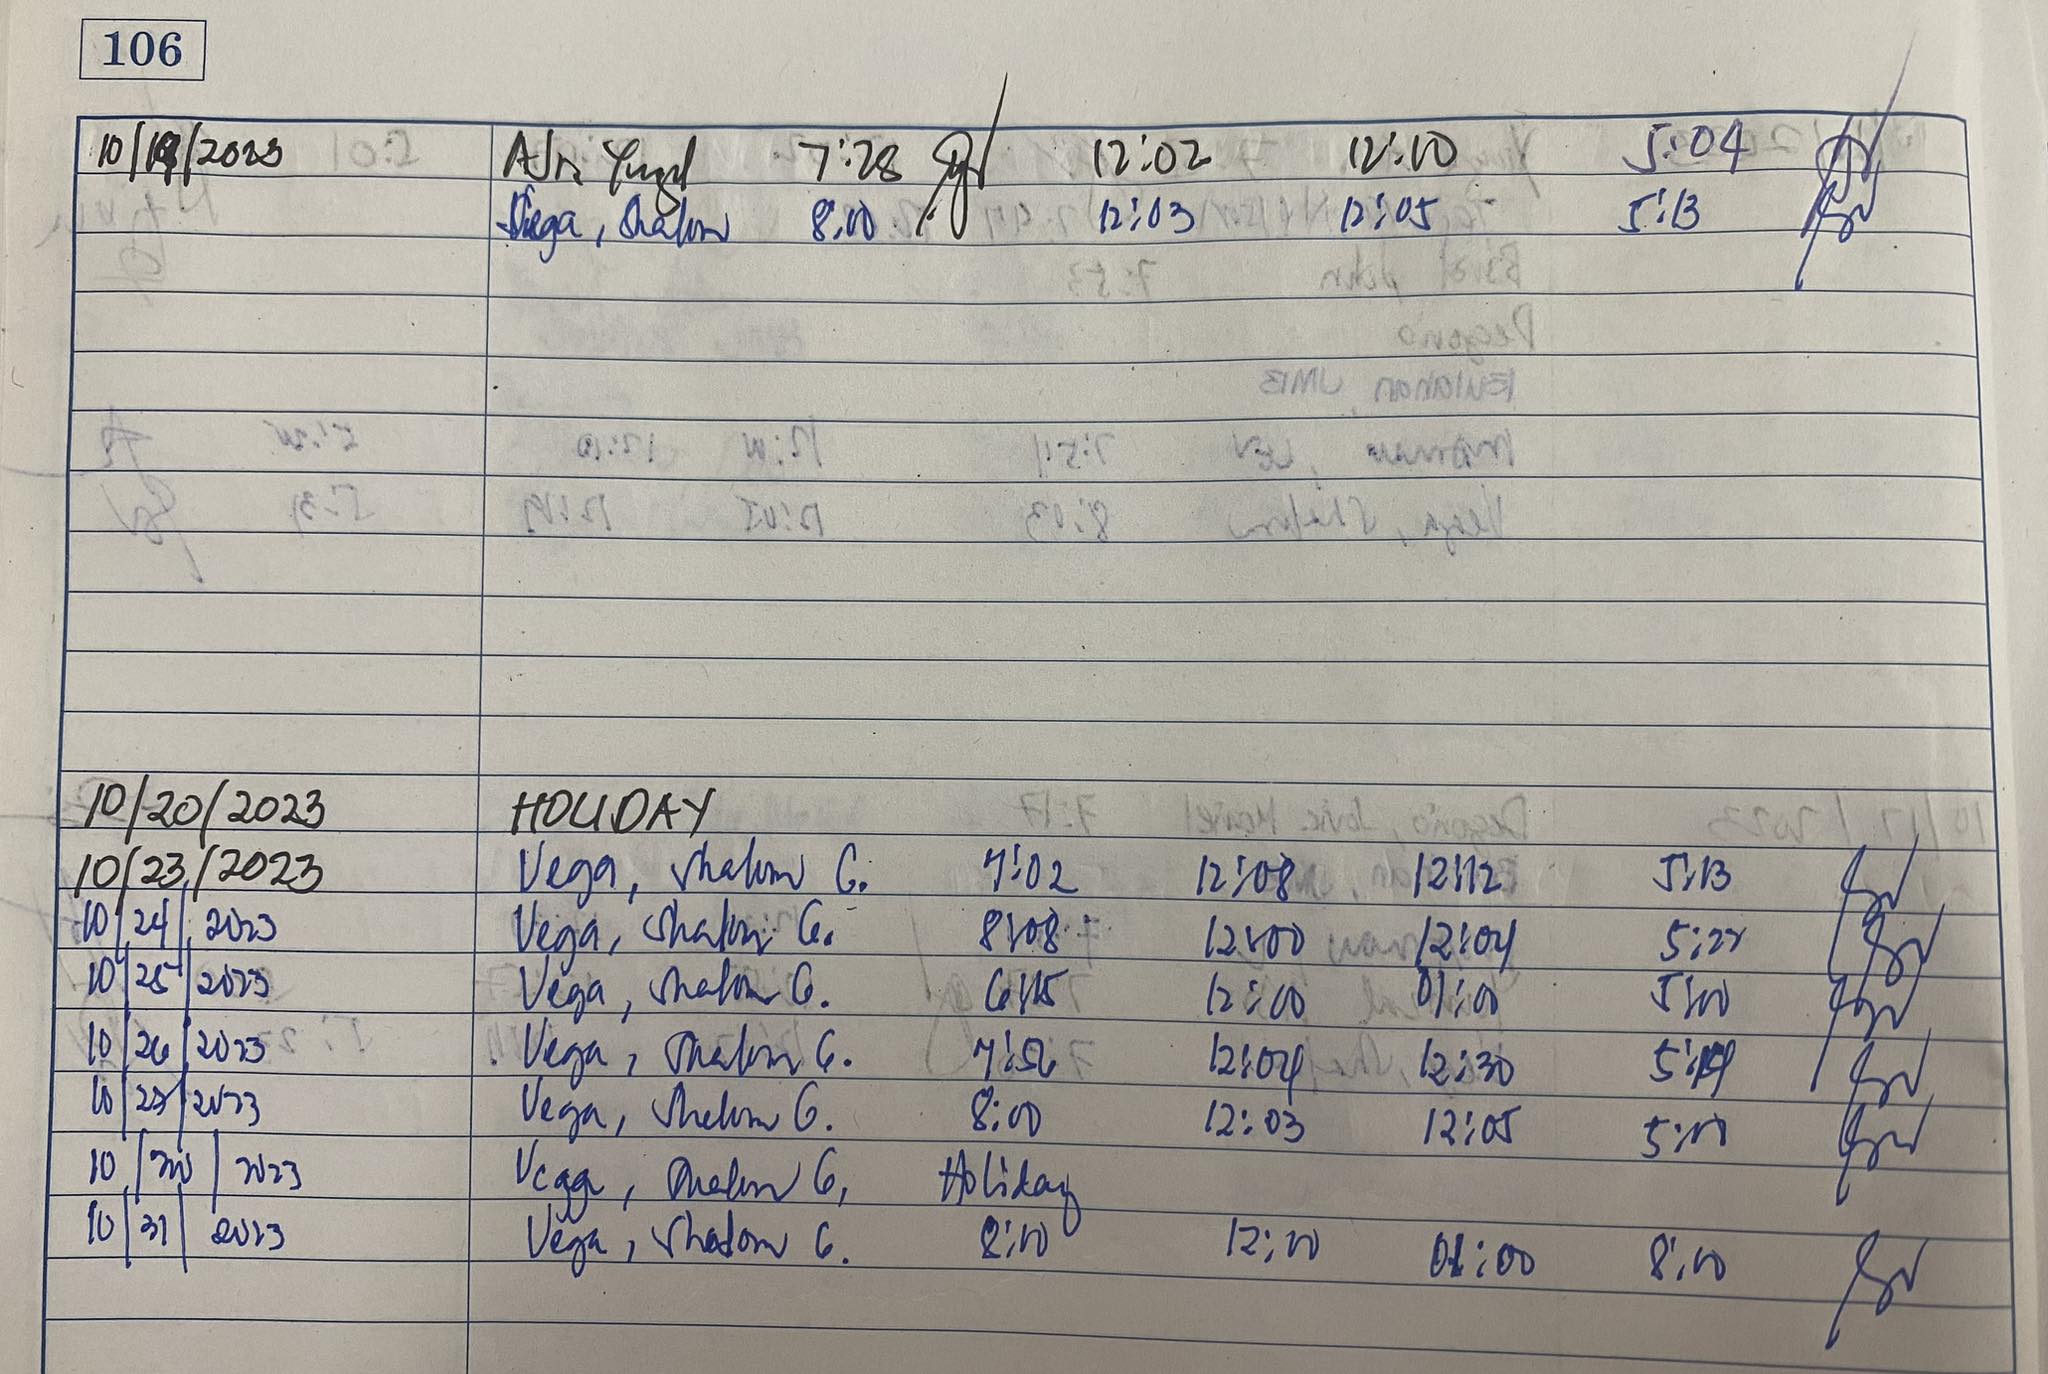 106
10/19/2023 7:28 12:02 12:10 5:04
Vega, Shalom 8:00 12:03 12:05 5:13
10/20/2023 HOLIDAY
10/23/2023 Vega, Shalom G. 7:02 12:08 12:12 5:13
10/24/2023 Vega, Shalom G. 8:08 12:00 12:04 5:22
10/25/2023 Vega, Shalom G. 6:45 12:00 01:00 5:00
10/26/2023 Vega, Shalom G. 7:56 12:04 12:30
10/27/2023 Vega, Shalom G. 8:00 12:03 12:05 5:00
10/30/2023 Vega, Shalom G, Holiday
10/31/2023 Vega, Shalom G. 8:00 12:00 01:00 8:00